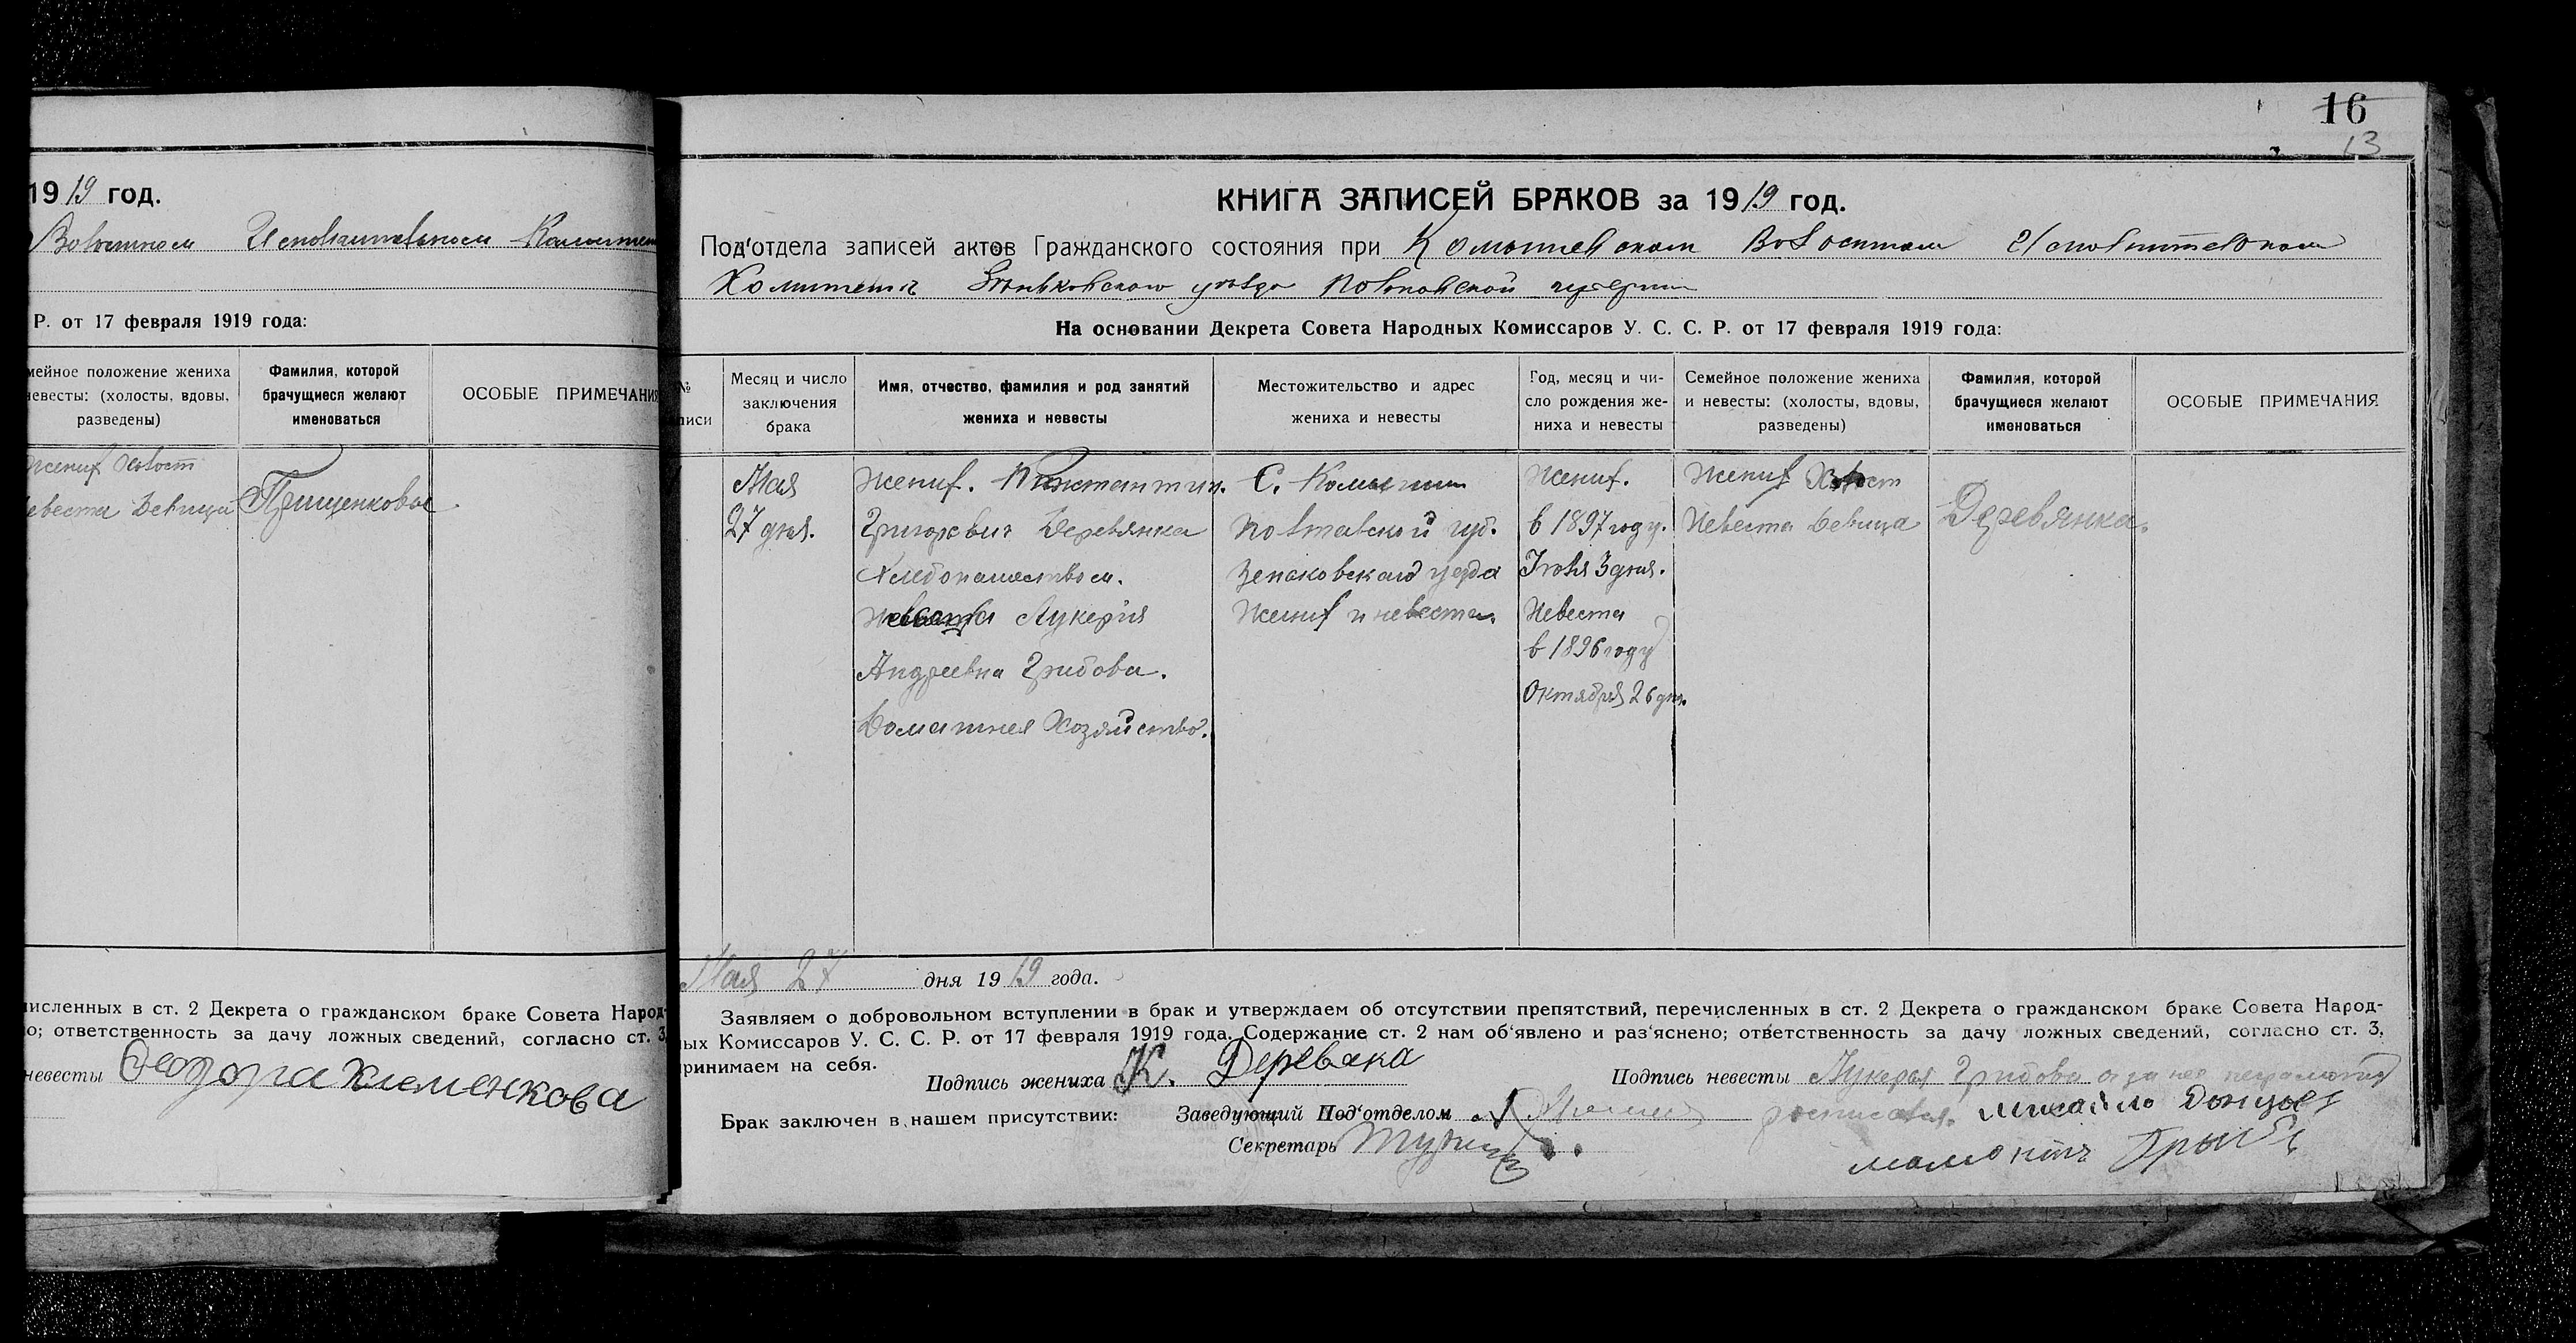 19 19 год.
Волостном Исполнительном Комитет
Р. от 17 февраля 1919 года:
мейное положение жениха
невесты: (холосты, вдовы,
разведены)
Фамилия, которой
брачущиеся желают
именоваться
ОСОБЫЕ ПРИМЕЧАНИЯ
Жених Холост
невеста Девица
Прищенковы
численных в ст. 2 Декрета о гражданском браке Совета Народ-
о; ответственность за дачу ложных сведений, согласно ст. 3,
невесты Феодора Клименкова
16
13
КНИГА ЗАПИСЕЙ БРАКОВ за 19 19 год.
Под‘отдела записей актов Гражданского состояния при Комышевском Волостном Исполнительном
Комитета Зеньковского уезда Полтавской губернии
На основании Декрета Совета Народных Комиссаров У. С. С. Р. от 17 февраля 1919 года:
№
писи
Месяц и число
заключения
брака
Имя, отчество, фамилия и род занятий
жениха и невесты
Местожительство и адрес
жениха и невесты
Год, месяц и чи-
сло рождения же-
ниха и невесты
Семейное положение жениха
и невесты: (холосты, вдовы,
разведены)
Фамилия, которой
брачущиеся желают
именоваться
ОСОБЫЕ ПРИМЕЧАНИЯ
Мая
27 дня.
Жених. Константин.
Григоревич Деревянка
Хлебопашеством.
Невеста Лукерия
Андреевна Грибова.
Домашнея Хозяйство.
С. Комыши
Полтавской губ.
Зеньковскаго уезда
Жених и невеста.
Жених.
в 1897 году.
Июля 3 дня.
Невеста
в 1896 году
Октября 26 дня.
Жених Холост
Невеста Девица
Деревянка.
Мая 27 дня 19 19 года.
Заявляем о добровольном вступлении в брак и утверждаем об отсутствии препятствий, перечисленных в ст. 2 Декрета о гражданском браке Совета Народ-
ных Комиссаров У. С. С. Р. от 17 февраля 1919 года. Содержание ст. 2 нам об‘явлено и раз‘яснено; ответственность за дачу ложных сведений, согласно ст. 3,
принимаем на себя.
Подпись жениха К. Деревяка
Подпись невесты Лукерья Грибова а за нее неграмотной
росписался. Михайло Донцов
Брак заключен в нашем присутствии:
Заведующий Под‘отделом
Секретарь